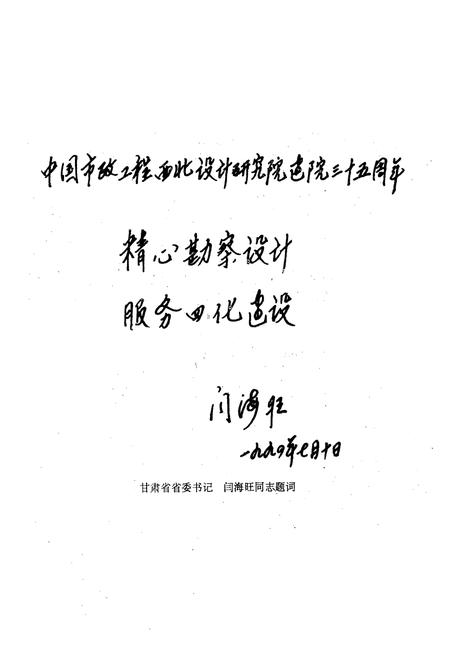 中国市政工程西北设计研究院建院三十五周年
精心勘察设计
服务四化建设
闫海旺
一九九〇年七月十日
甘肃省省委书记　闫海旺同志题词